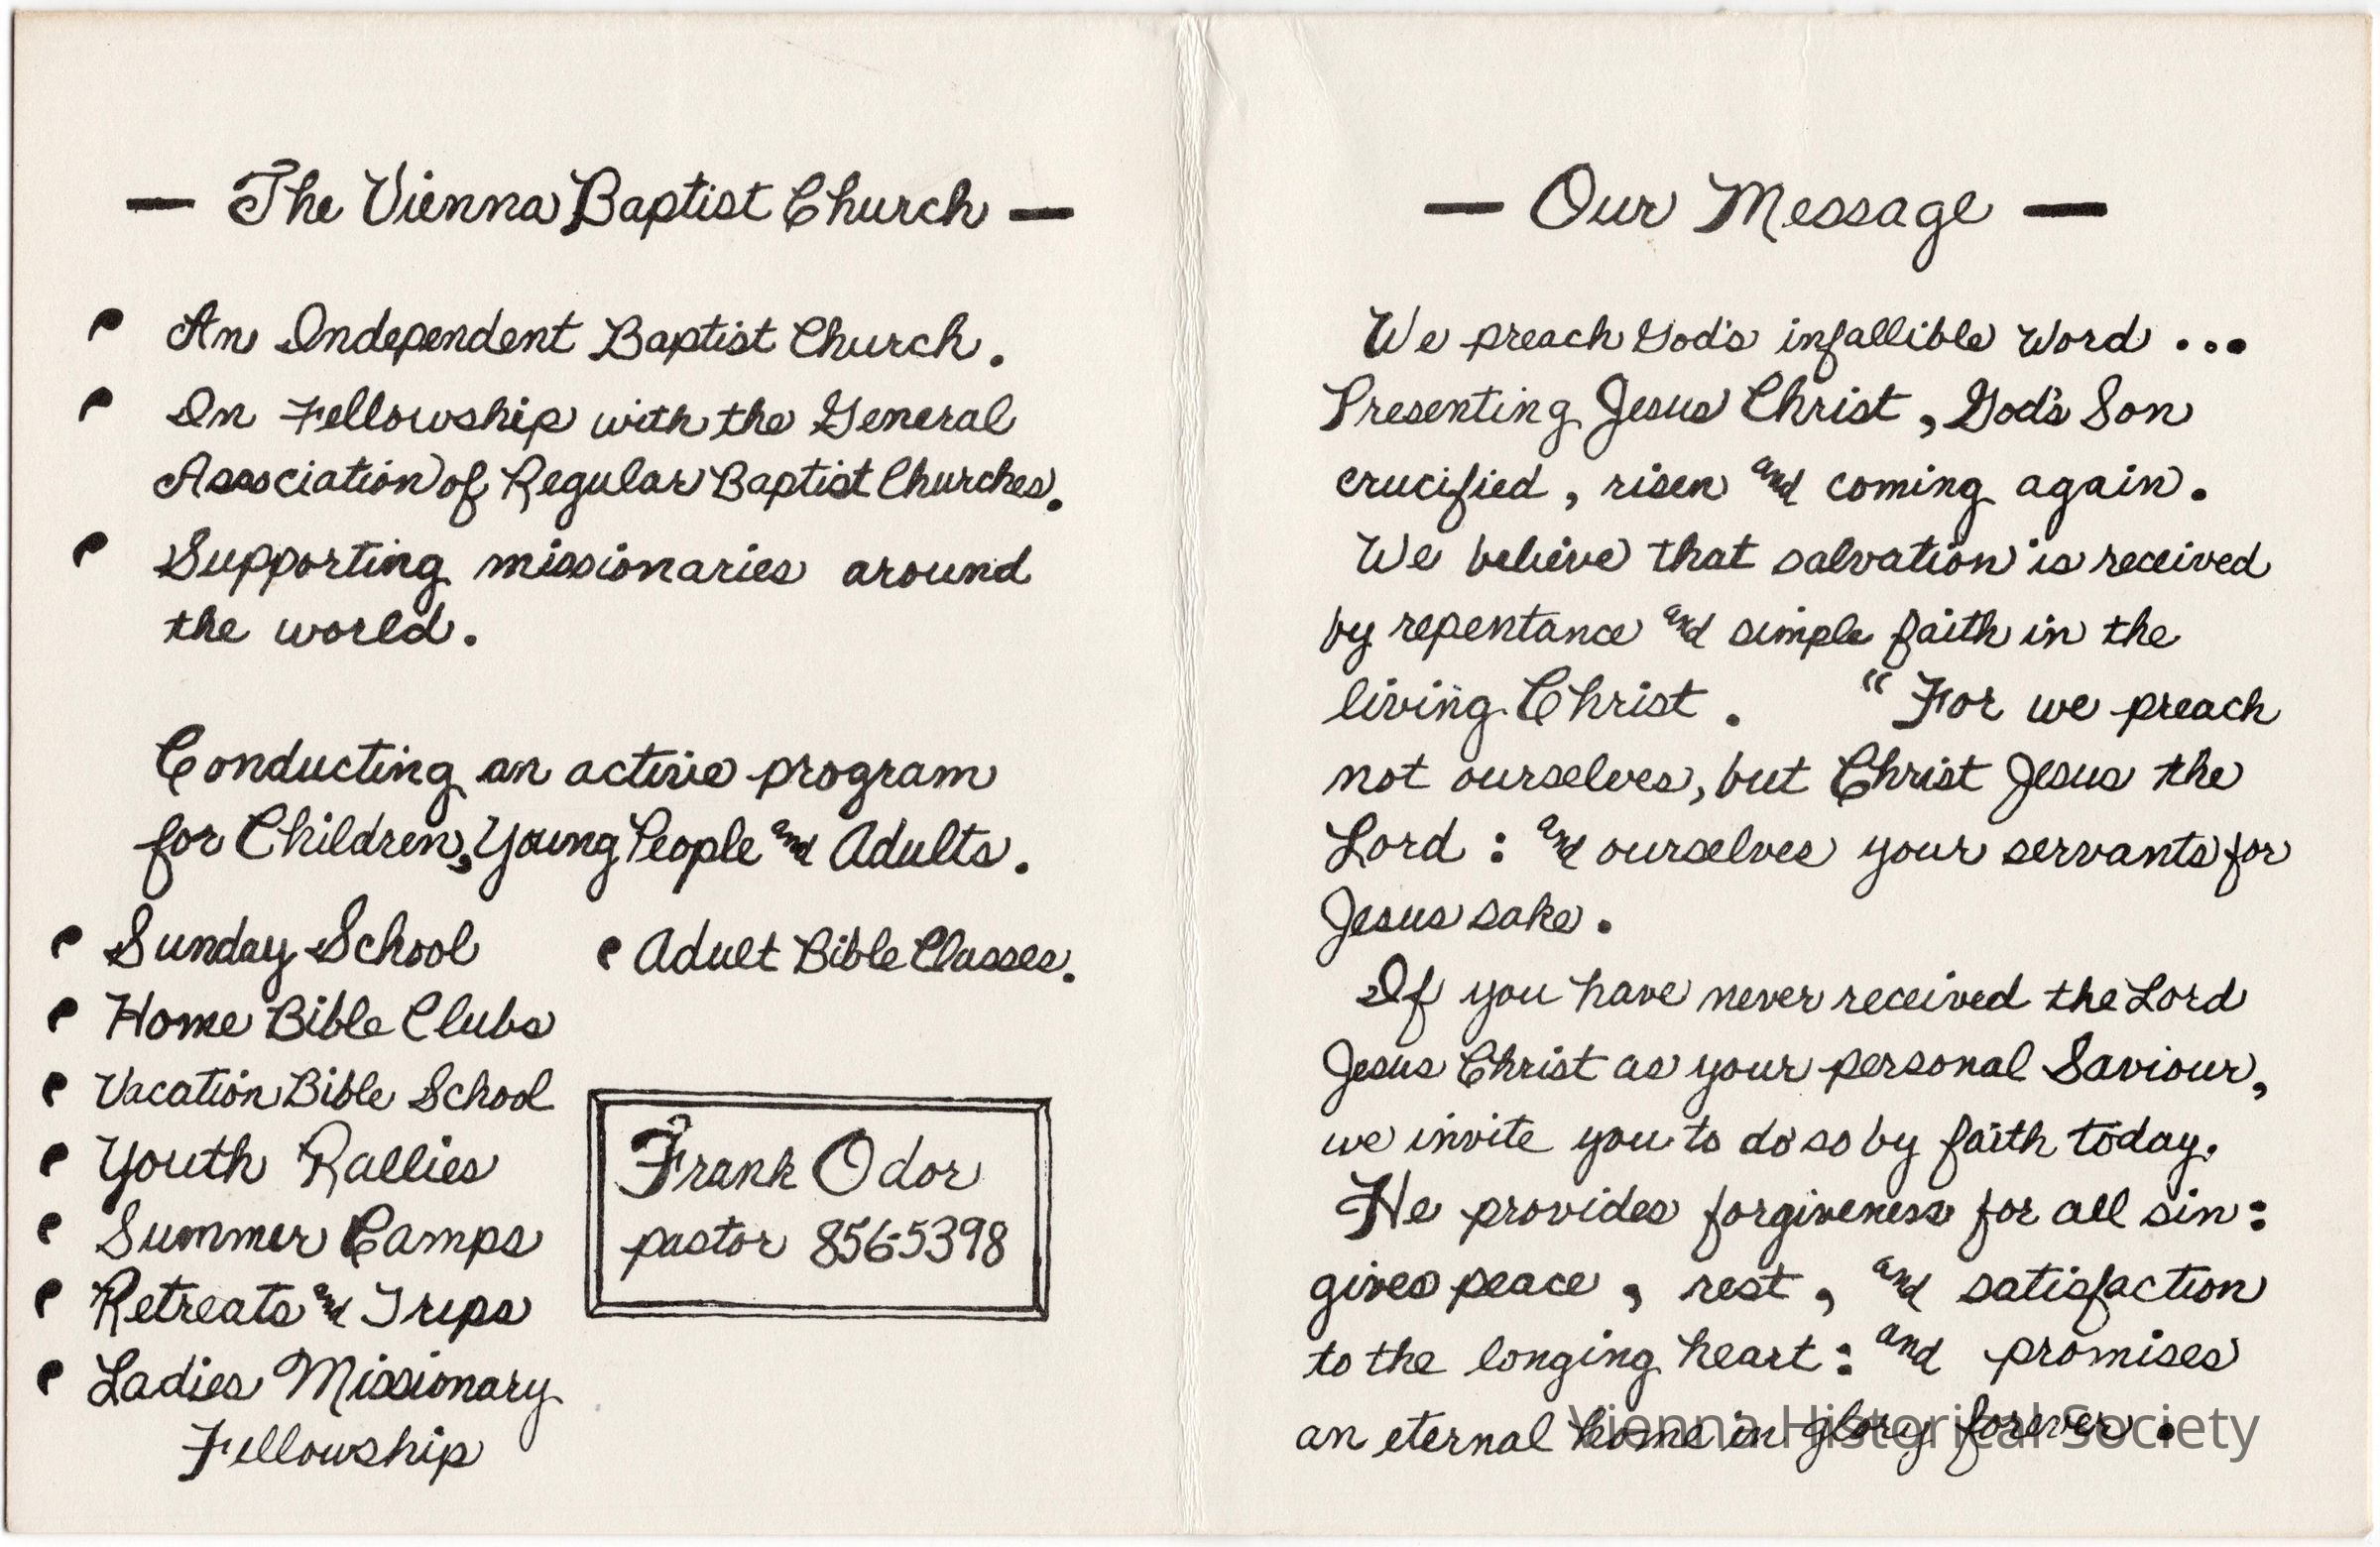 — The Vienna Baptist Church —
• An Independent Baptist Church.
• In Fellowship with the General
Association of Regular Baptist Churches.
• Supporting missionaries around
the world.
Conducting an active program
for Children, Young People and Adults.
• Sunday School
• Adult Bible Classes.
• Home Bible Clubs
• Vacation Bible School
• Youth Rallies
• Summer Camps
• Retreats and Trips
• Ladies Missionary
Fellowship
Frank Odor
pastor 856-5398
— Our Message —
We preach God's infallible Word ...
Presenting Jesus Christ, God's Son
crucified, risen and coming again.
We believe that salvation is received
by repentance and simple faith in the
living Christ. "For we preach
not ourselves, but Christ Jesus the
Lord: and ourselves your servants for
Jesus sake.
If you have never received the Lord
Jesus Christ as your personal Saviour,
we invite you to do so by faith today.
He provides forgiveness for all sin:
gives peace, rest, and satisfaction
to the longing heart: and promises
an eternal home in glory forever.
Vienna Historical Society